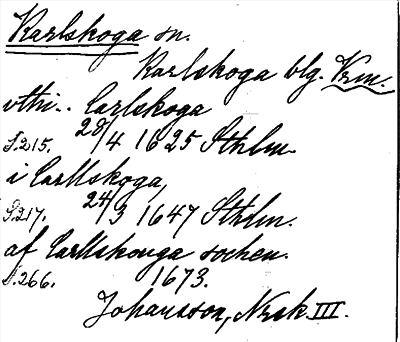 Karlskoga sn.
Karlskoga blg. Vrm.
vthi.. Carlskoga
S.215. 28/4 1625 Sthlm.
i Carllskoga,
S.217. 24/3 1647 Sthlm.
af Carllskouga sochen.
S.266. 1673.
Johansson, Norsk III.